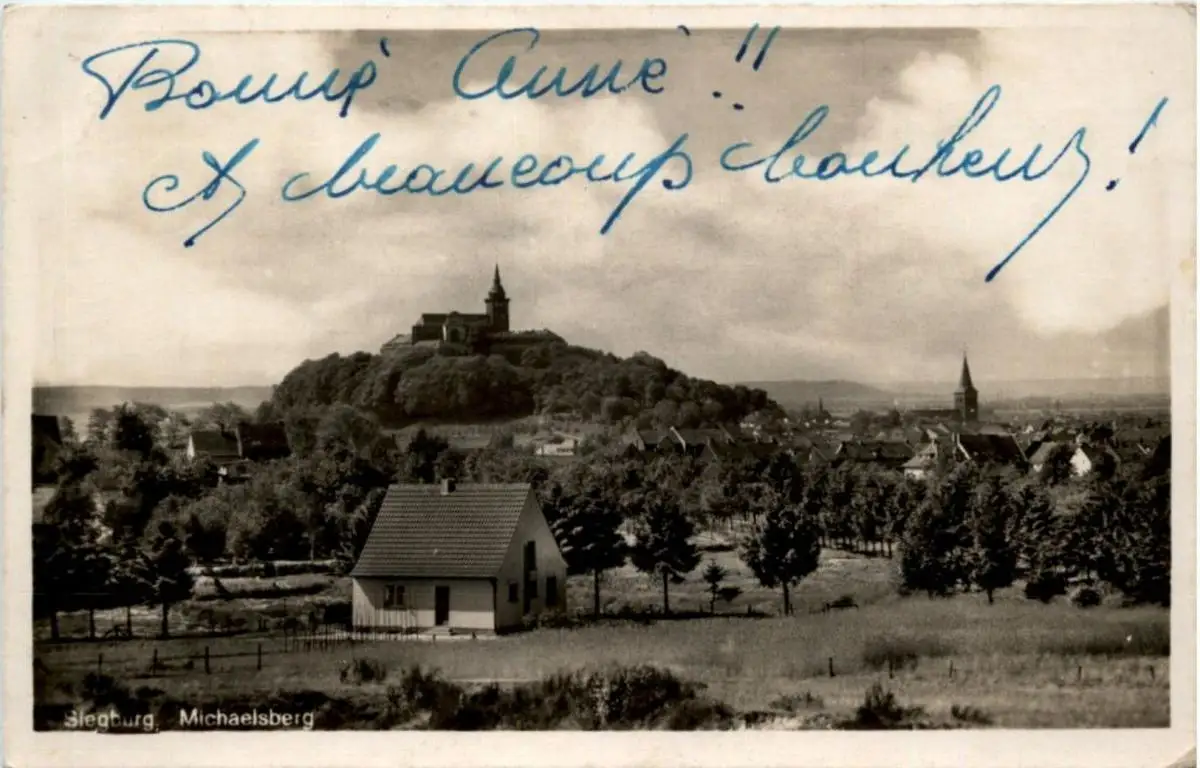 Bonné Anné !!
et beaucoup bonheur !
Siegburg, Michaelsberg